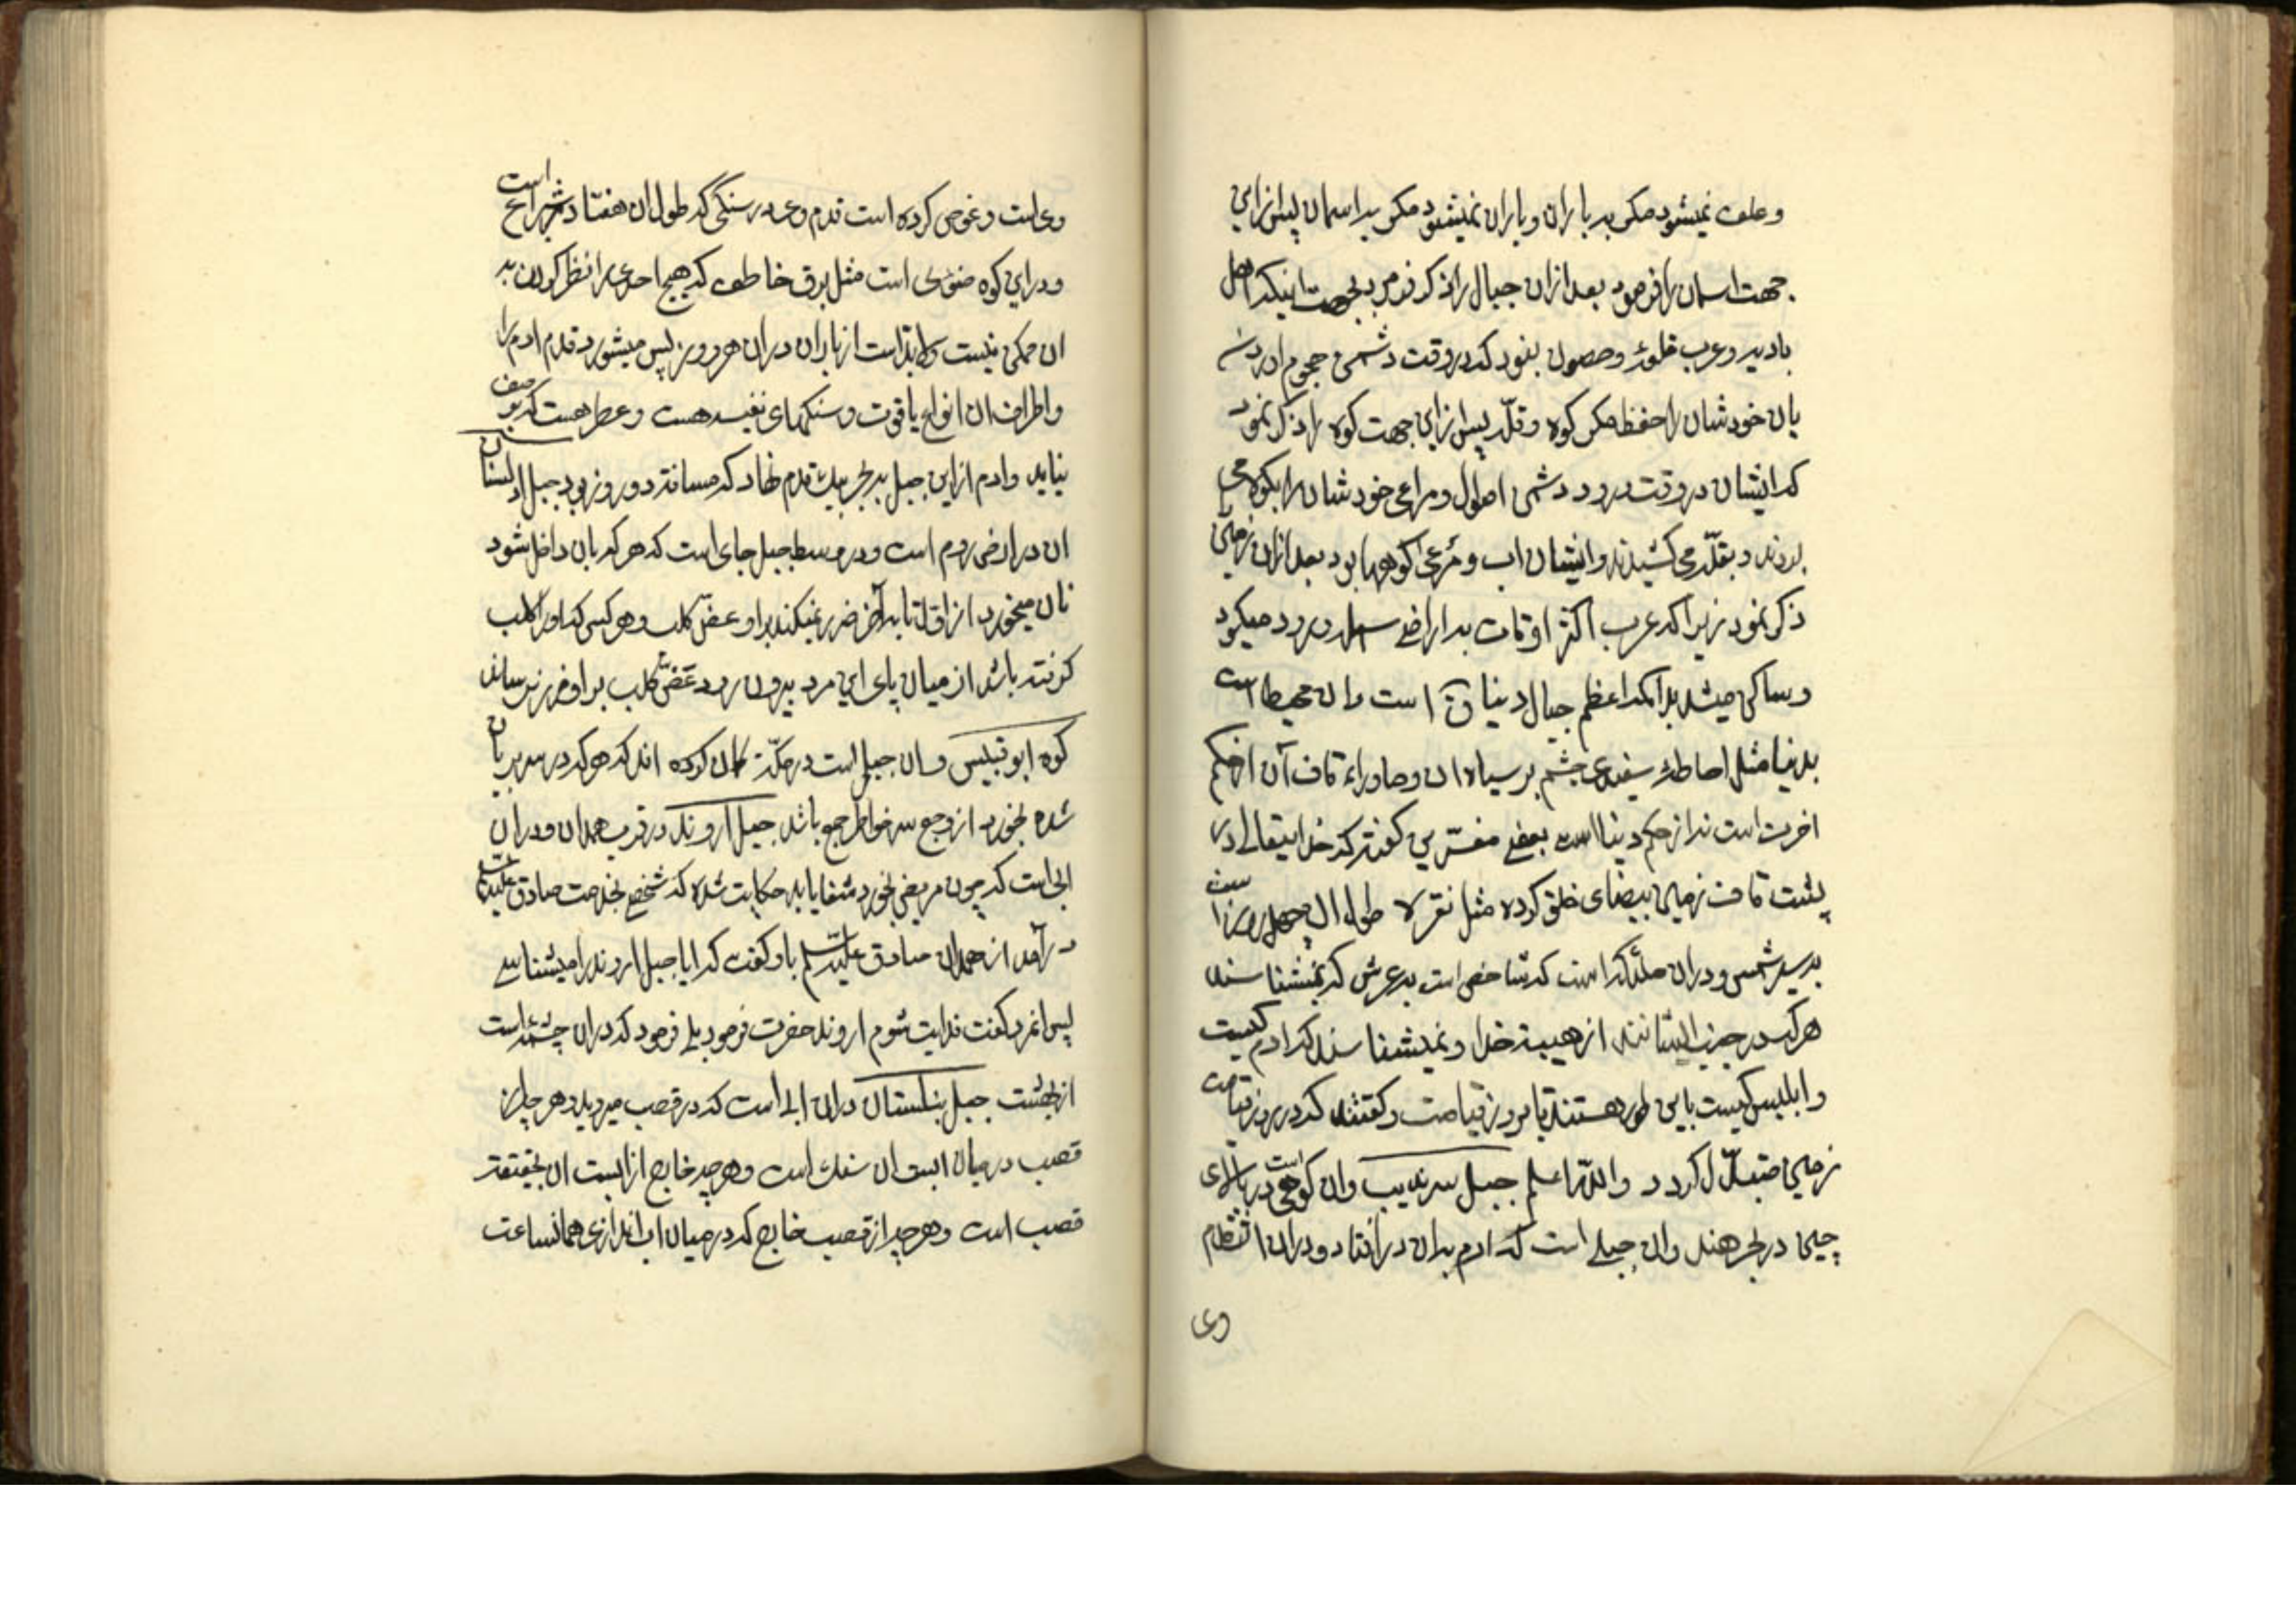 وعلف نمیشود مکر به باران و باران نمیشود مکر به اسمان پس ازاین
جهت اسمان را فرمود بعد ازان جبال را ذکر فرمود بجهت اینکه اهل
بادیه و عرب قلوع و حصون بنود که در وقت دشمن هجوم اوردن
بان خودشان را حفظ مکر کوه و قلّه پس ازاین جهت کوه را ذکر نمود
که ایشان در وقت ورود دشمن اموال و مراعی خودشان را بکوه می
بردند و بقلّه می کشیدند وایشان اب و مرعی کوهها بود بعد ازان زمین را
ذکر نمود زیرا که عرب اکثر اوقات به اراضی سهل ورود میکرد
و ساکن میشد بدانکه اعظم جبال دنیا ق است وان محیط است
بدنیا مثل احاطهٔ سفیدی چشم بر سیاه ان و ماوراء قاف آن از حکم
اخرت است نه از حکم دنیا است بعضی مفسّرین کفته که خدایتعالی در
پشت قاف زمین بیضای خلق کرده مثل نقره طول ان چهل روز است
به سیر شمس ودران ملئکه است که شاخص است به عرش که نمیشناسند
هر که در جنب ایشانند از هیبة خدا و نمیشناسند که ادم کیست
و ابلیس کیست باین طور هستند تا بروز قیامت و کفتند که در روز قیامت
زمین متبدّل کردد والله اعلم جبل سرندیب وان کوهی است در بالای
چین در بحر هند وان جبلی است که ادم بدان درافتاد و دران
وی
وی است و غوص کرده است قدم وی در سنکی که طول ان هفتاد شبر است
و در این کوه ضوئی است مثل برق خاطف که هیچ احدی را نظر کردن به
ان ممکن نیست ولابدّ است از باران دران هر روز پس میشورد قدم ادم را
و اطراف ان انواع یاقوت و سنکهای نفیسه هست و عطر هست که بوصف
نیاید وادم از این جبل به بحر بیک قدم نهاد که مسافة دو روز بود جبل
ان در ارض روم است و در وسط جبل جای است که هر که بان داخل شود
نان میخورد از اوّل تا به آخر ضرر نمیکند براو عضّ کلب و هر کسی که اورا کلب
کرفته باشد از میان پای این مرد بیرون رود عضّ کلب براو ضرر نرساند
کوه ابو قبیس وان جبلی است در مکّه کمان کرده اند که هر که در سر بریان
شده بخورد از وجع سر خواطر جمع باشد جبل اروند در قرب همدان و دران
ابی است که چون مریض بخورد شفا یابد حکایت شده که شخصی بخدمت صادق علیه السّلام
درآمد از همدان صادق علیه السّلم باو کفت که ایا جبل اروند را میشناسی
پس انمرد کفت فدایت شوم اروند حضرت فرمود بلی فرمود که دران چشمهٔ است
از بهشت جبل دران ابی است که در قصب میروید و هر چه از
قصب در میان ابست ان سنک است و هر چه خارج از ابست ان بحقیقته
قصب است و هر چه از قصب خارج که در میان اب اندازی همانساعت